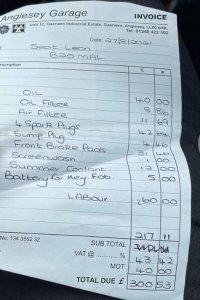 Anglesey Garage
INVOICE
Unit 12, Gaerwen Industrial Estate, Gaerwen, Anglesey, LL60 6HR
Tel: 01248 422 553
Date: 27/8/2021
Seat Leon
B20 MAL
Description
£
Oil 40 00
Oil Filter 8 86
Air Filter 11 69
4 Spark Plugs 42 64
Sump Plug 4 46
Front Brake Pads 31 46
Screenwash 1 00
Summer Coolant 12 00
Battery for key Fob 5 00
Labour 60 00
No. 134 3552 32
SUB TOTAL 217 11
VAT @ ........ % 43 42
MOT 40 00
TOTAL DUE £ 300 53